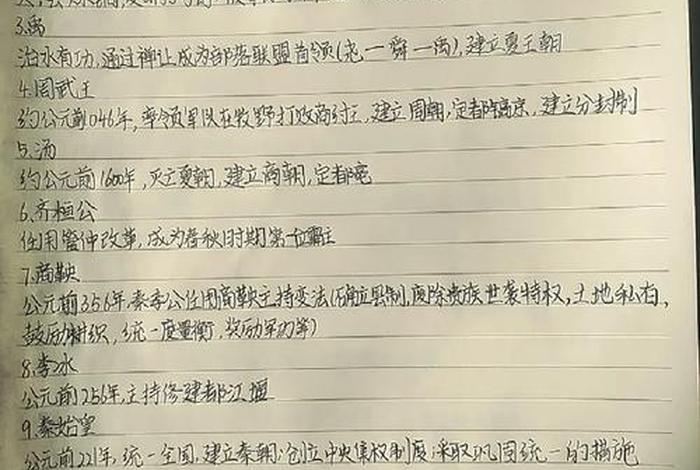 3.禹
治水有功,通过禅让成为部落联盟首领(尧一舜一禹),建立夏王朝
4.周武王
约公元前1046年,率领军队在牧野打败商纣王,建立周朝,定都镐京,建立分封制
5.汤
约公元前1600年,灭亡夏朝,建立商朝,定都亳
6.齐桓公
任用管仲改革,成为春秋时期第一位霸主
7.商鞅
公元前356年,秦孝公任用商鞅主持变法(确立县制,废除贵族世袭特权,土地私有,
鼓励耕织,统一度量衡,奖励军功等)
8.李冰
公元前256年,主持修建都江堰
9.秦始皇
公元前221年,统一全国,建立秦朝,创立中央集权制度,采取巩固统一的措施